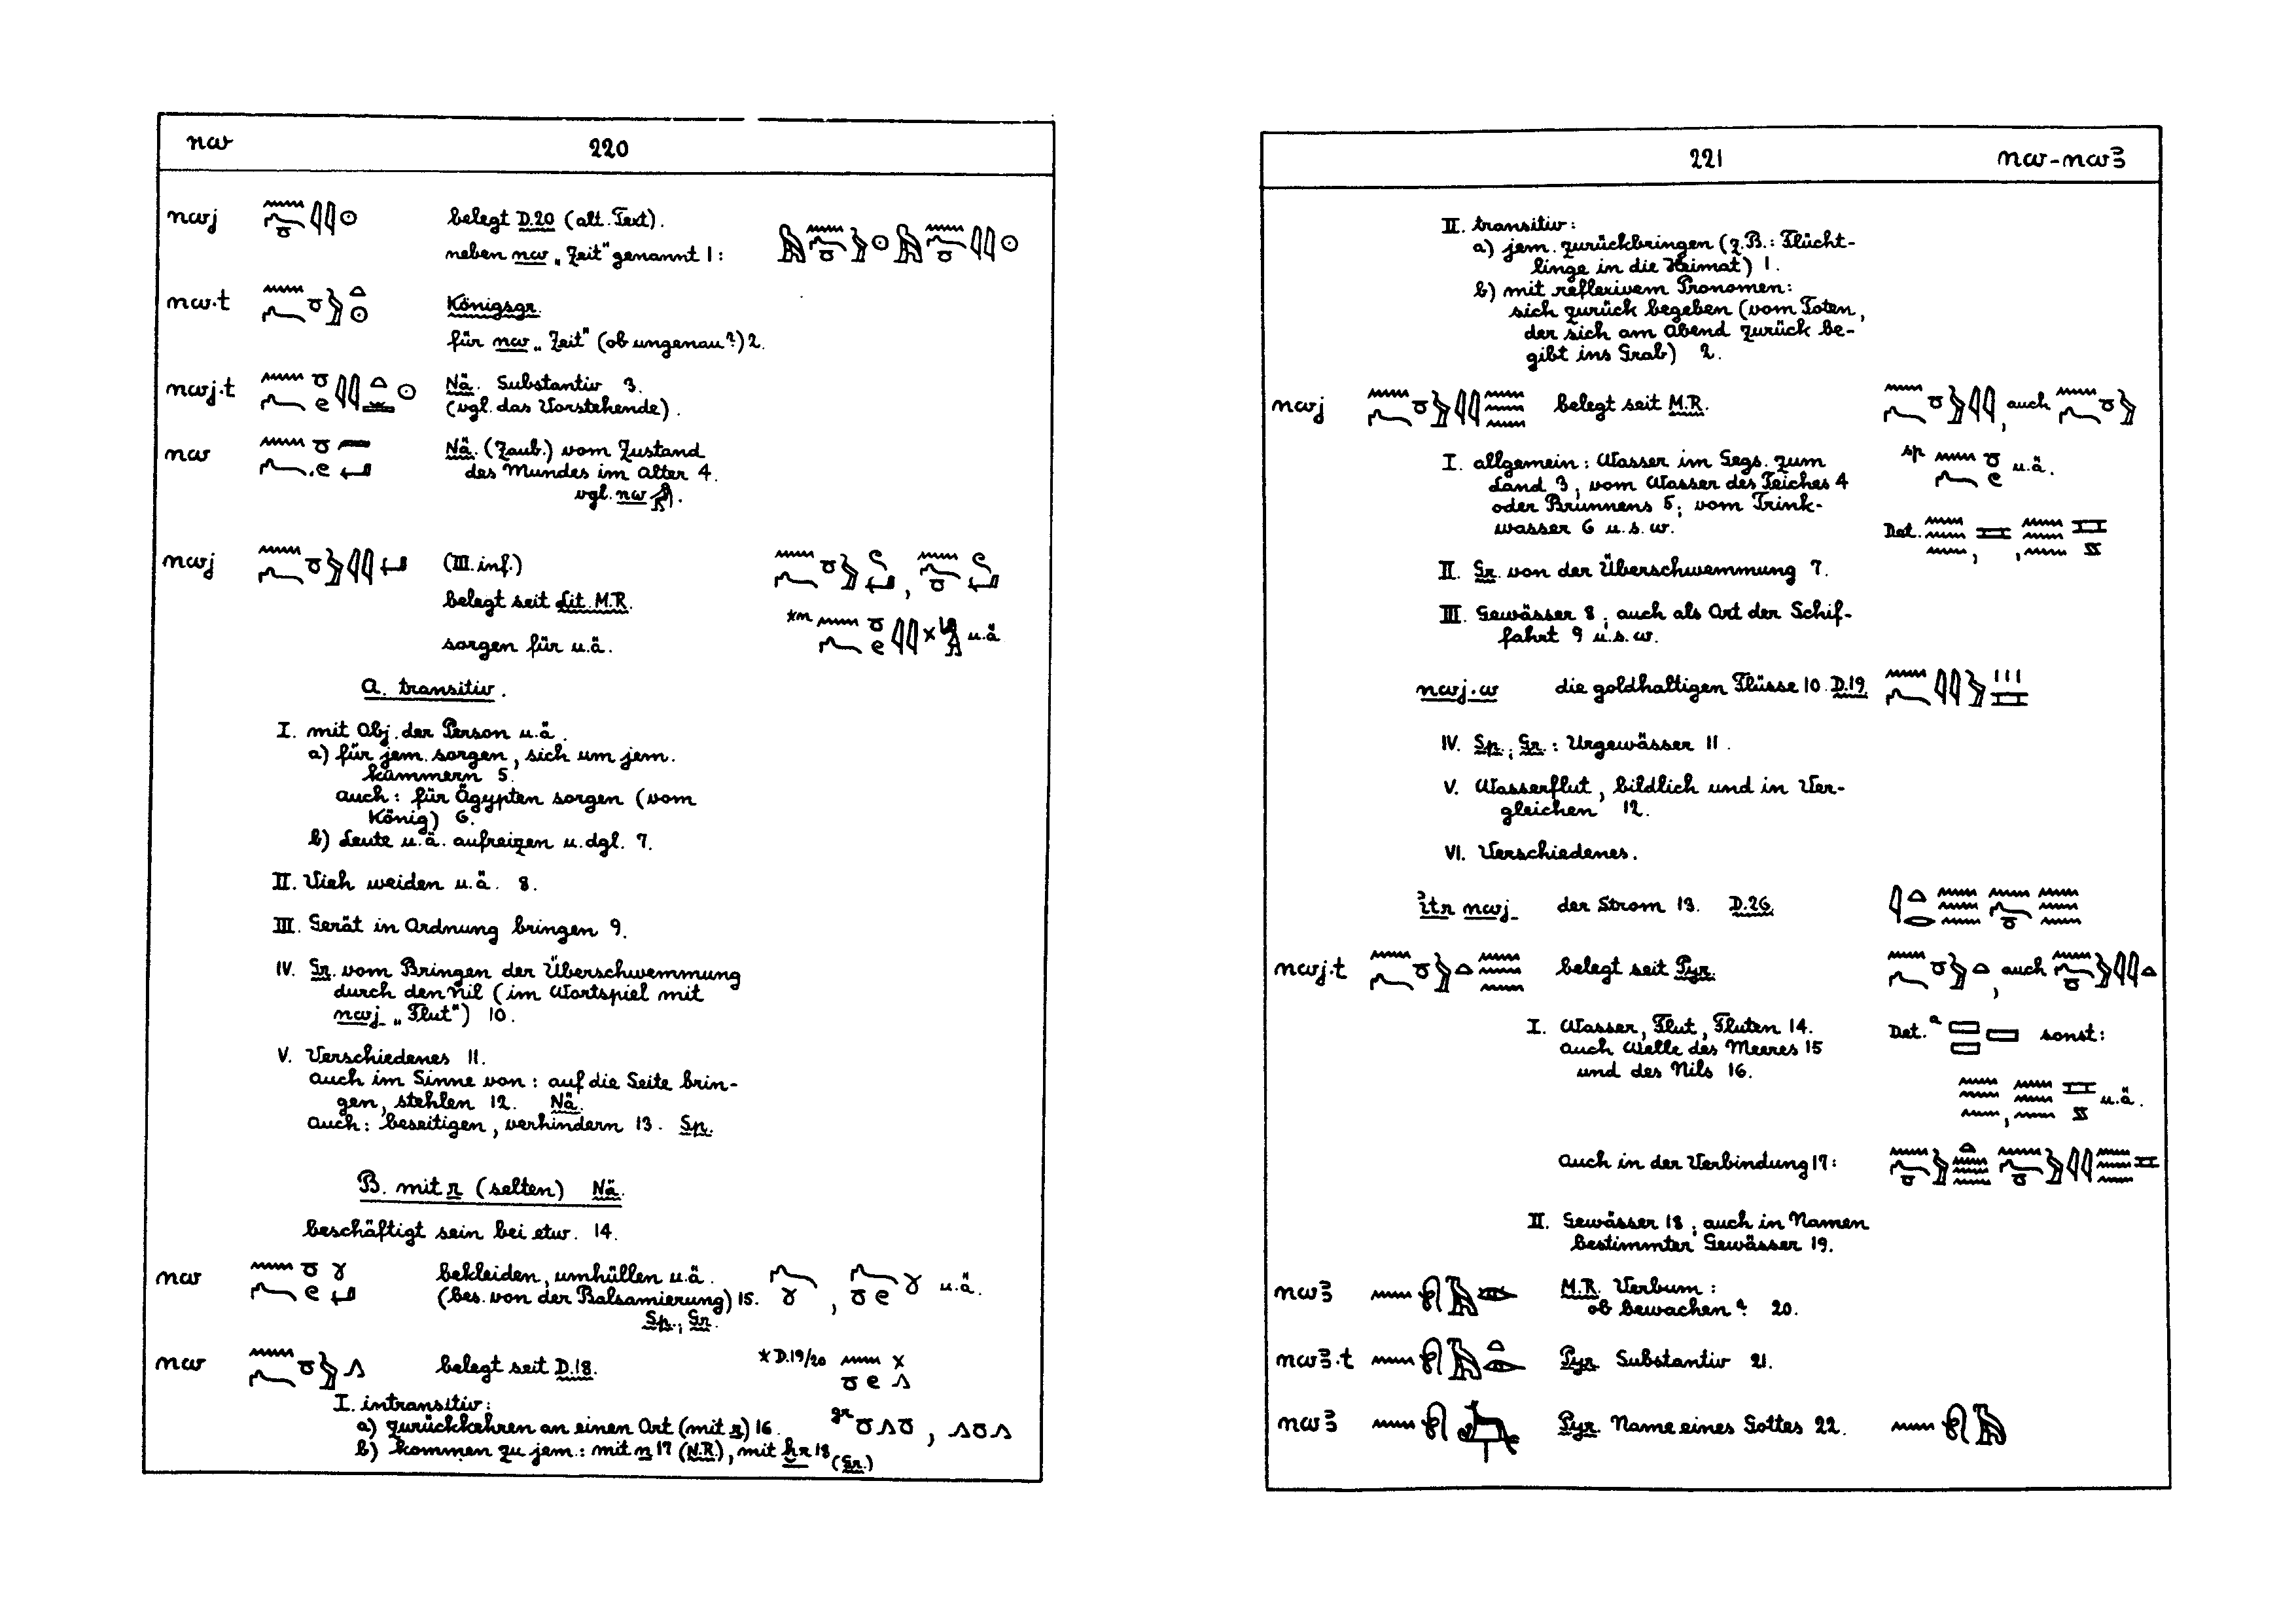 nw 220
nwj belegt D.20 (alt. Text).
neben nw „Zeit" genannt 1:
nw.t Königsgr.
für nw „Zeit" (ob ungenau?) 2.
nwj.t Nä. Substantiv 3.
(vgl. das Vorstehende).
nw Nä. (Zaub.) vom Zustand
des Mundes im Alter 4.
vgl. nw
nwj (III. inf.)
belegt seit Lit. M.R.
sorgen für u.ä. u.ä
A. transitiv.
I. mit Obj. der Person u.ä.
a) für jem. sorgen, sich um jem.
kümmern 5.
auch: für Ägypten sorgen (vom
König) 6.
b) Leute u.ä. aufreizen u.dgl. 7.
II. Vieh weiden u.ä. 8.
III. Gerät in Ordnung bringen 9.
IV. Gr. vom Bringen der Überschwemmung
durch den Nil (im Wortspiel mit
nwj „Flut") 10.
V. Verschiedenes 11.
auch im Sinne von: auf die Seite brin-
gen, stehlen 12. Nä.
Auch: beseitigen, verhindern 13. Sp.
B. mit r (selten) Nä.
beschäftigt sein bei etw. 14.
nw bekleiden, umhüllen u.ä. u.ä.
(bes. von der Balsamierung) 15.
Sp.; Gr.
nw belegt seit D.18. *D.19/20
I. intransitiv:
a) zurückkehren an einen Ort (mit r) 16. gr
b) kommen zu jem.: mit n 17 (N.R.), mit ḫr 18 (Gr.)
221 nw-nwꜣ
II. transitiv:
a) jem. zurückbringen (z.B.: Flücht-
linge in die Heimat) 1.
b) mit reflexivem Pronomen:
sich zurück begeben (vom Toten,
der sich am Abend zurück be-
gibt ins Grab) 2.
nwj belegt seit M.R. , auch
I. allgemein: Wasser im Gegs. zum
Land 3; vom Wasser des Teiches 4
oder Brunnens 5; vom Trink-
wasser 6 u.s.w.
sp u.ä.
Det.
II. Gr. von der Überschwemmung 7.
III. Gewässer 8; auch als Ort der Schif-
fahrt 9 u.s.w.
nwj.w die goldhaltigen Flüsse 10. D.19.
IV. Sp.; Gr.: Urgewässer 11.
V. Wasserflut, bildlich und in Ver-
gleichen 12.
VI. Verschiedenes.
ꞽtr nwj der Strom 13. D.26.
nwj.t belegt seit Pyr. , auch
I. Wasser, Flut, Fluten 14.
auch Welle des Meeres 15
und des Nils 16.
Det. a sonst:
u.ä.
Auch in der Verbindung 17:
II. Gewässer 18; auch in Namen
bestimmter Gewässer 19.
nwꜣ M.R. Verbum:
ob bewachen? 20.
nwꜣ.t Pyr. Substantiv 21.
nwꜣ Pyr. Name eines Gottes 22.